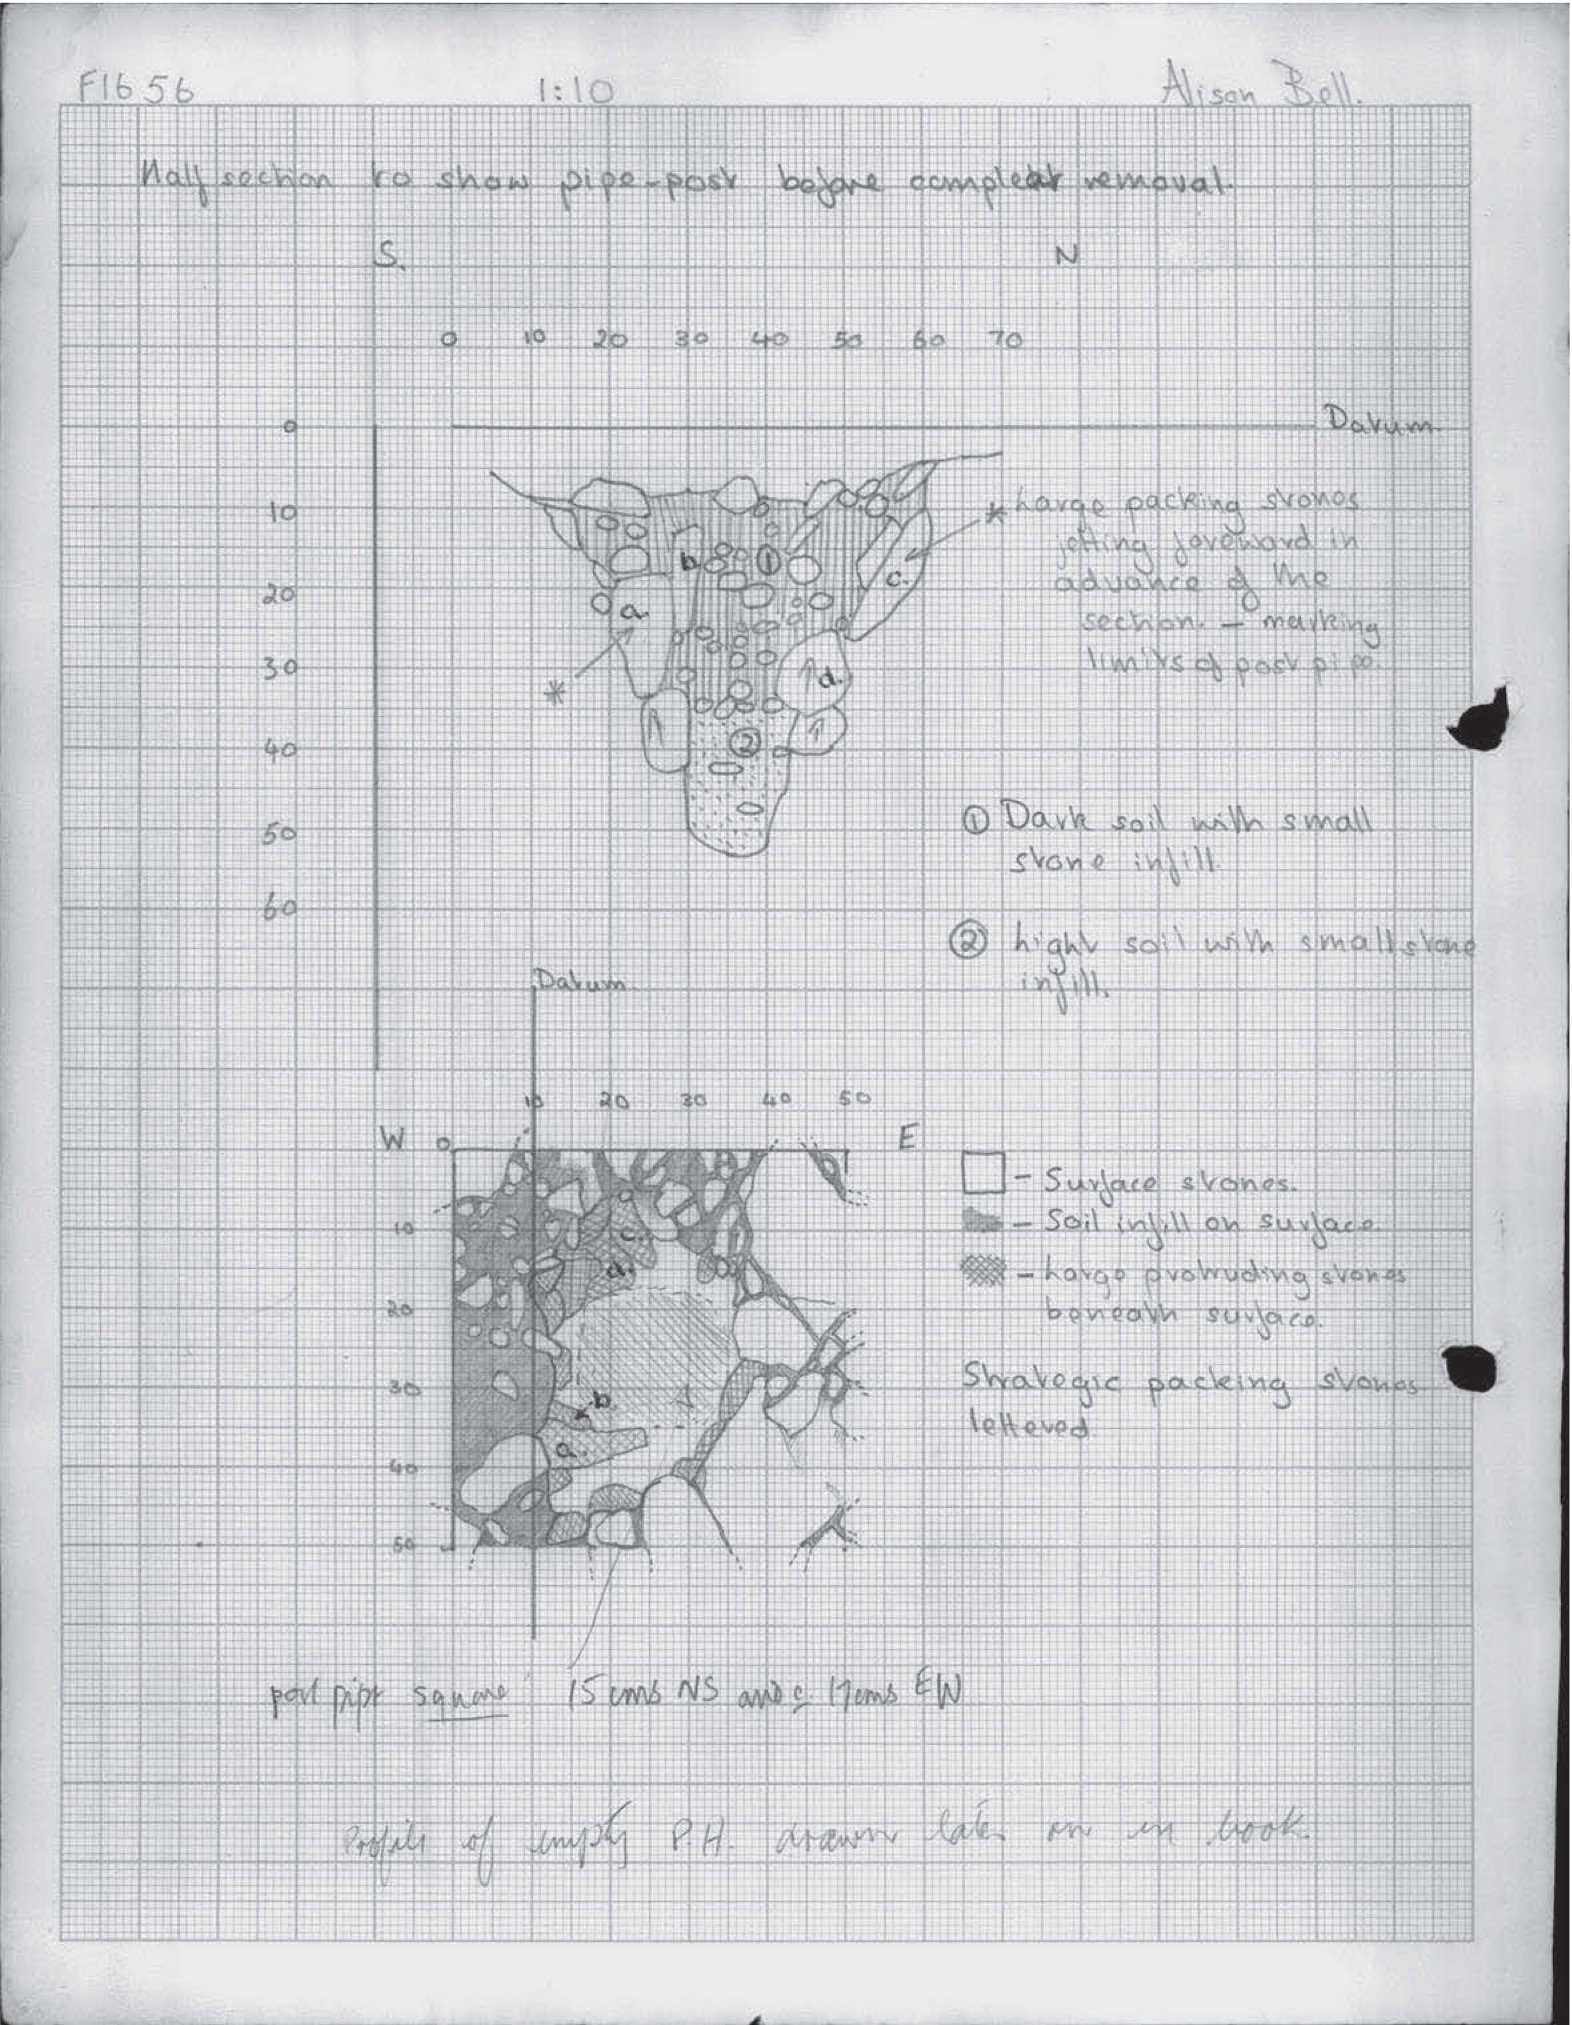 F16 56 1:10 Alison Bell.
Half section to show pipe-post before compleat removal.
S. N
0 10 20 30 40 50 60 70
0 Datum
10
20
30
40
50
60
* Large packing stones
jetting foreward in
advance of the
section. - marking
limits of post pipe.
b 1 c.
a
d.
*
2
① Dark soil with small
stone infill.
② Light soil with small stone
infill.
Datum
10 20 30 40 50
W 0 E
10
20
30
40
50
c.
d.
b
a.
- Surface stones.
- Soil infill on surface.
- Large protruding stones
beneath surface.
Strategic packing stones
lettered
post pipe square 15 cms NS and c. 17cms EW
Profile of empty P.H. drawn later on in book.